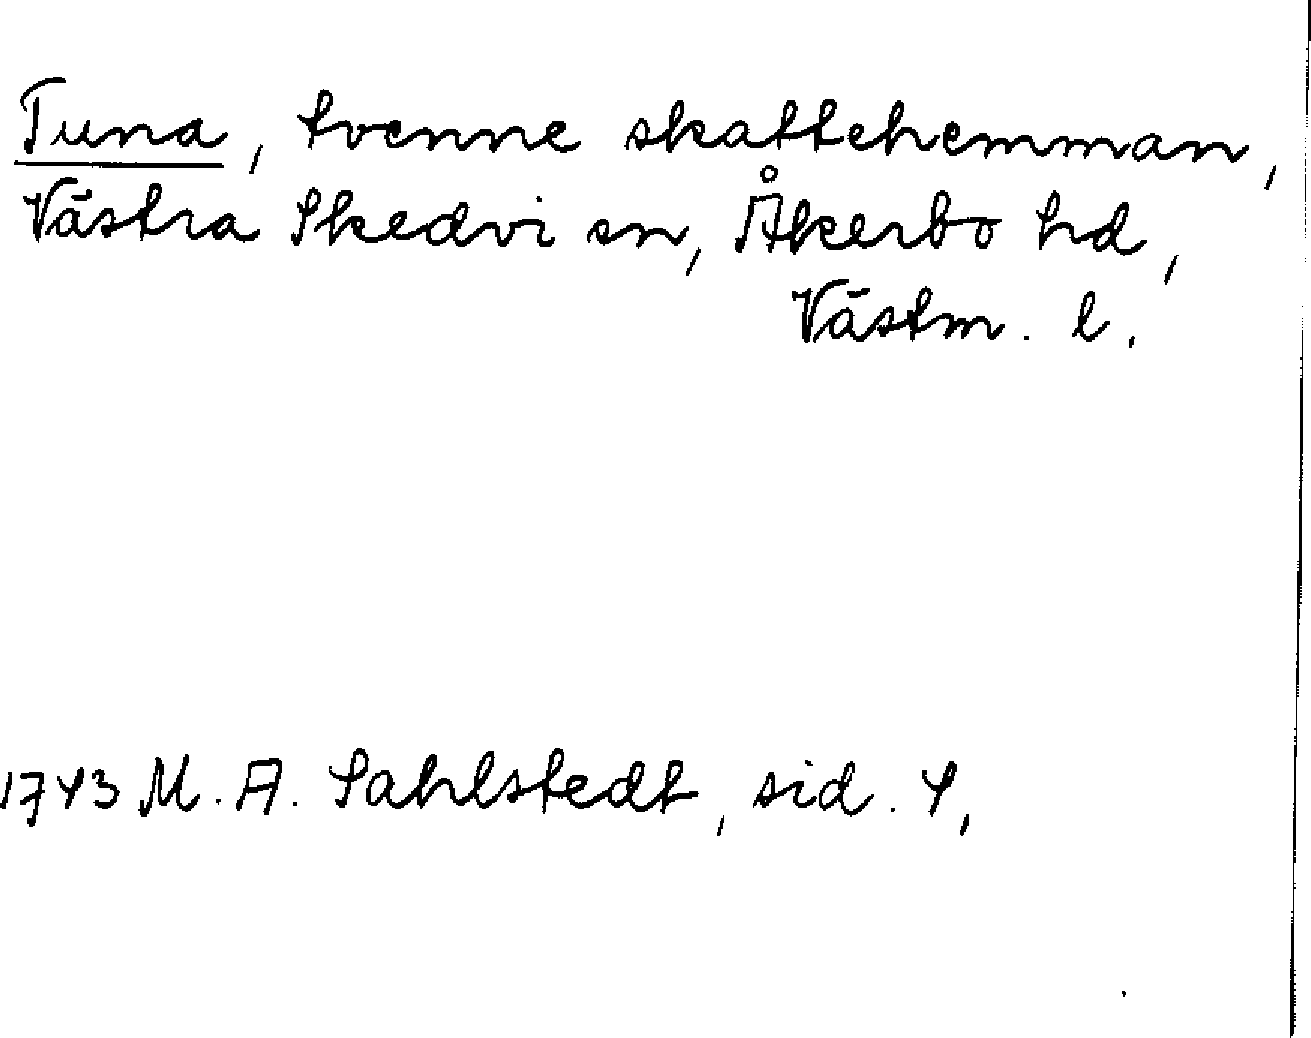 Tuna, tvenne skattehemman,
Västra Skedvi sn, Åkerbo hd,
Västm. l.
1743 M. A. Sahlstedt, sid. 4,